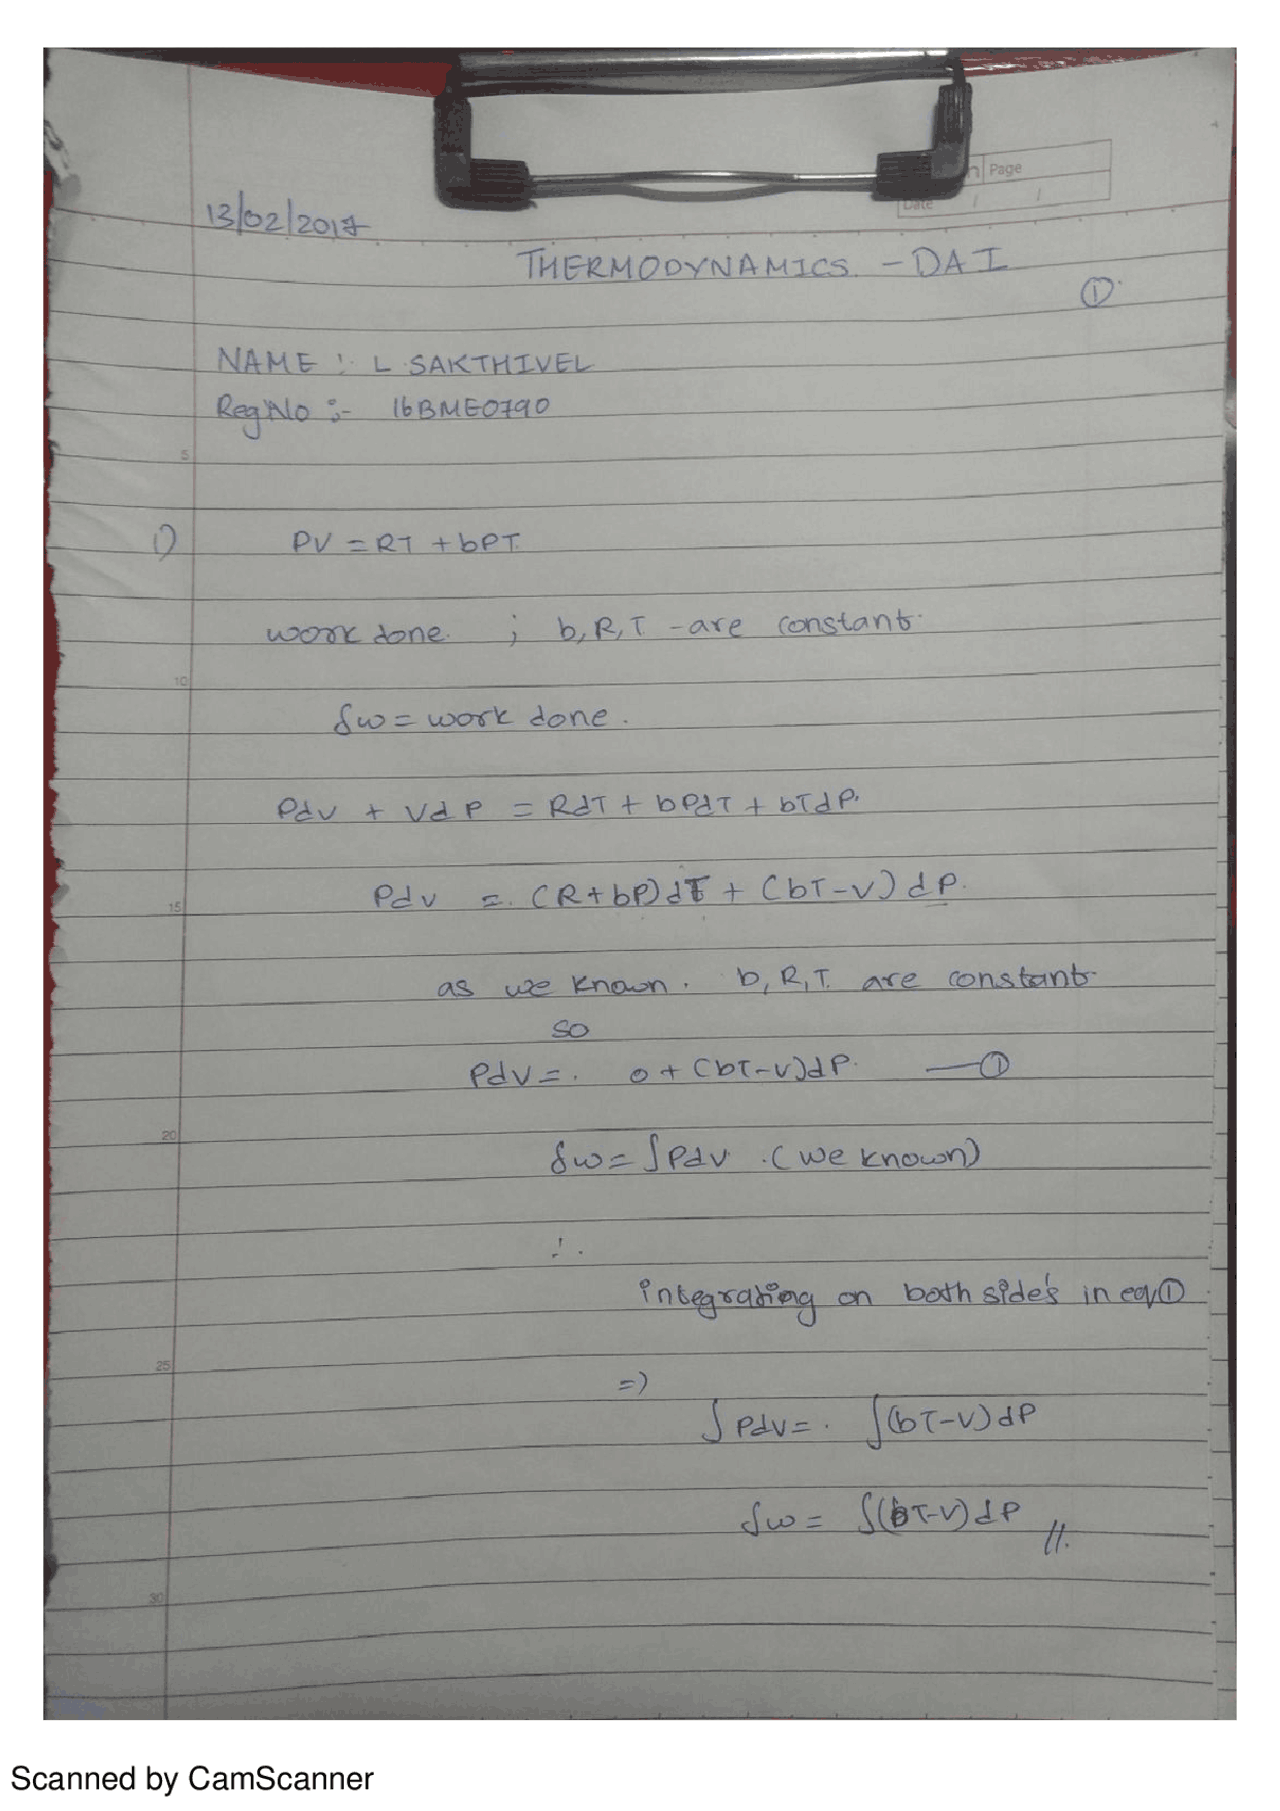 Page
Date / /
13/02/2017
THERMODYNAMICS. - DA I
①
NAME : L SAKTHIVEL
Reg No :- 16BME0790
5
1) PV = RT + bPT.
work done. ; b, R, T - are constant.
10
δw = work done.
Pdv + vdP = RdT + bPdT + bTdP.
Pdv = (R+bP)dT + (bT-v)dP.
15
as we known. b, R, T. are constant
so
Pdv = . 0 + (bT-v)dP. —①
20
δw = ∫Pdv . (we known)
∴
integrating on both side's in eq ①
25
=)
∫Pdv = . ∫(bT-v)dP
δw = ∫(bT-v)dP //.
30
Scanned by CamScanner